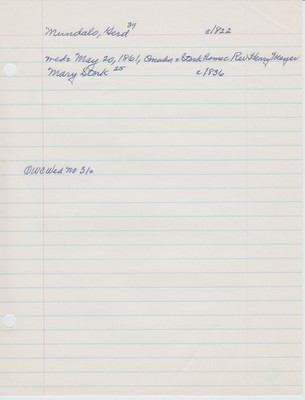 Mundalo, Gerd 39 c1822
med: May 20, 1861, Omaha, Stork home: Rev. Henry Meyer
Mary Stork 25 c1836
DWC Wed no 310